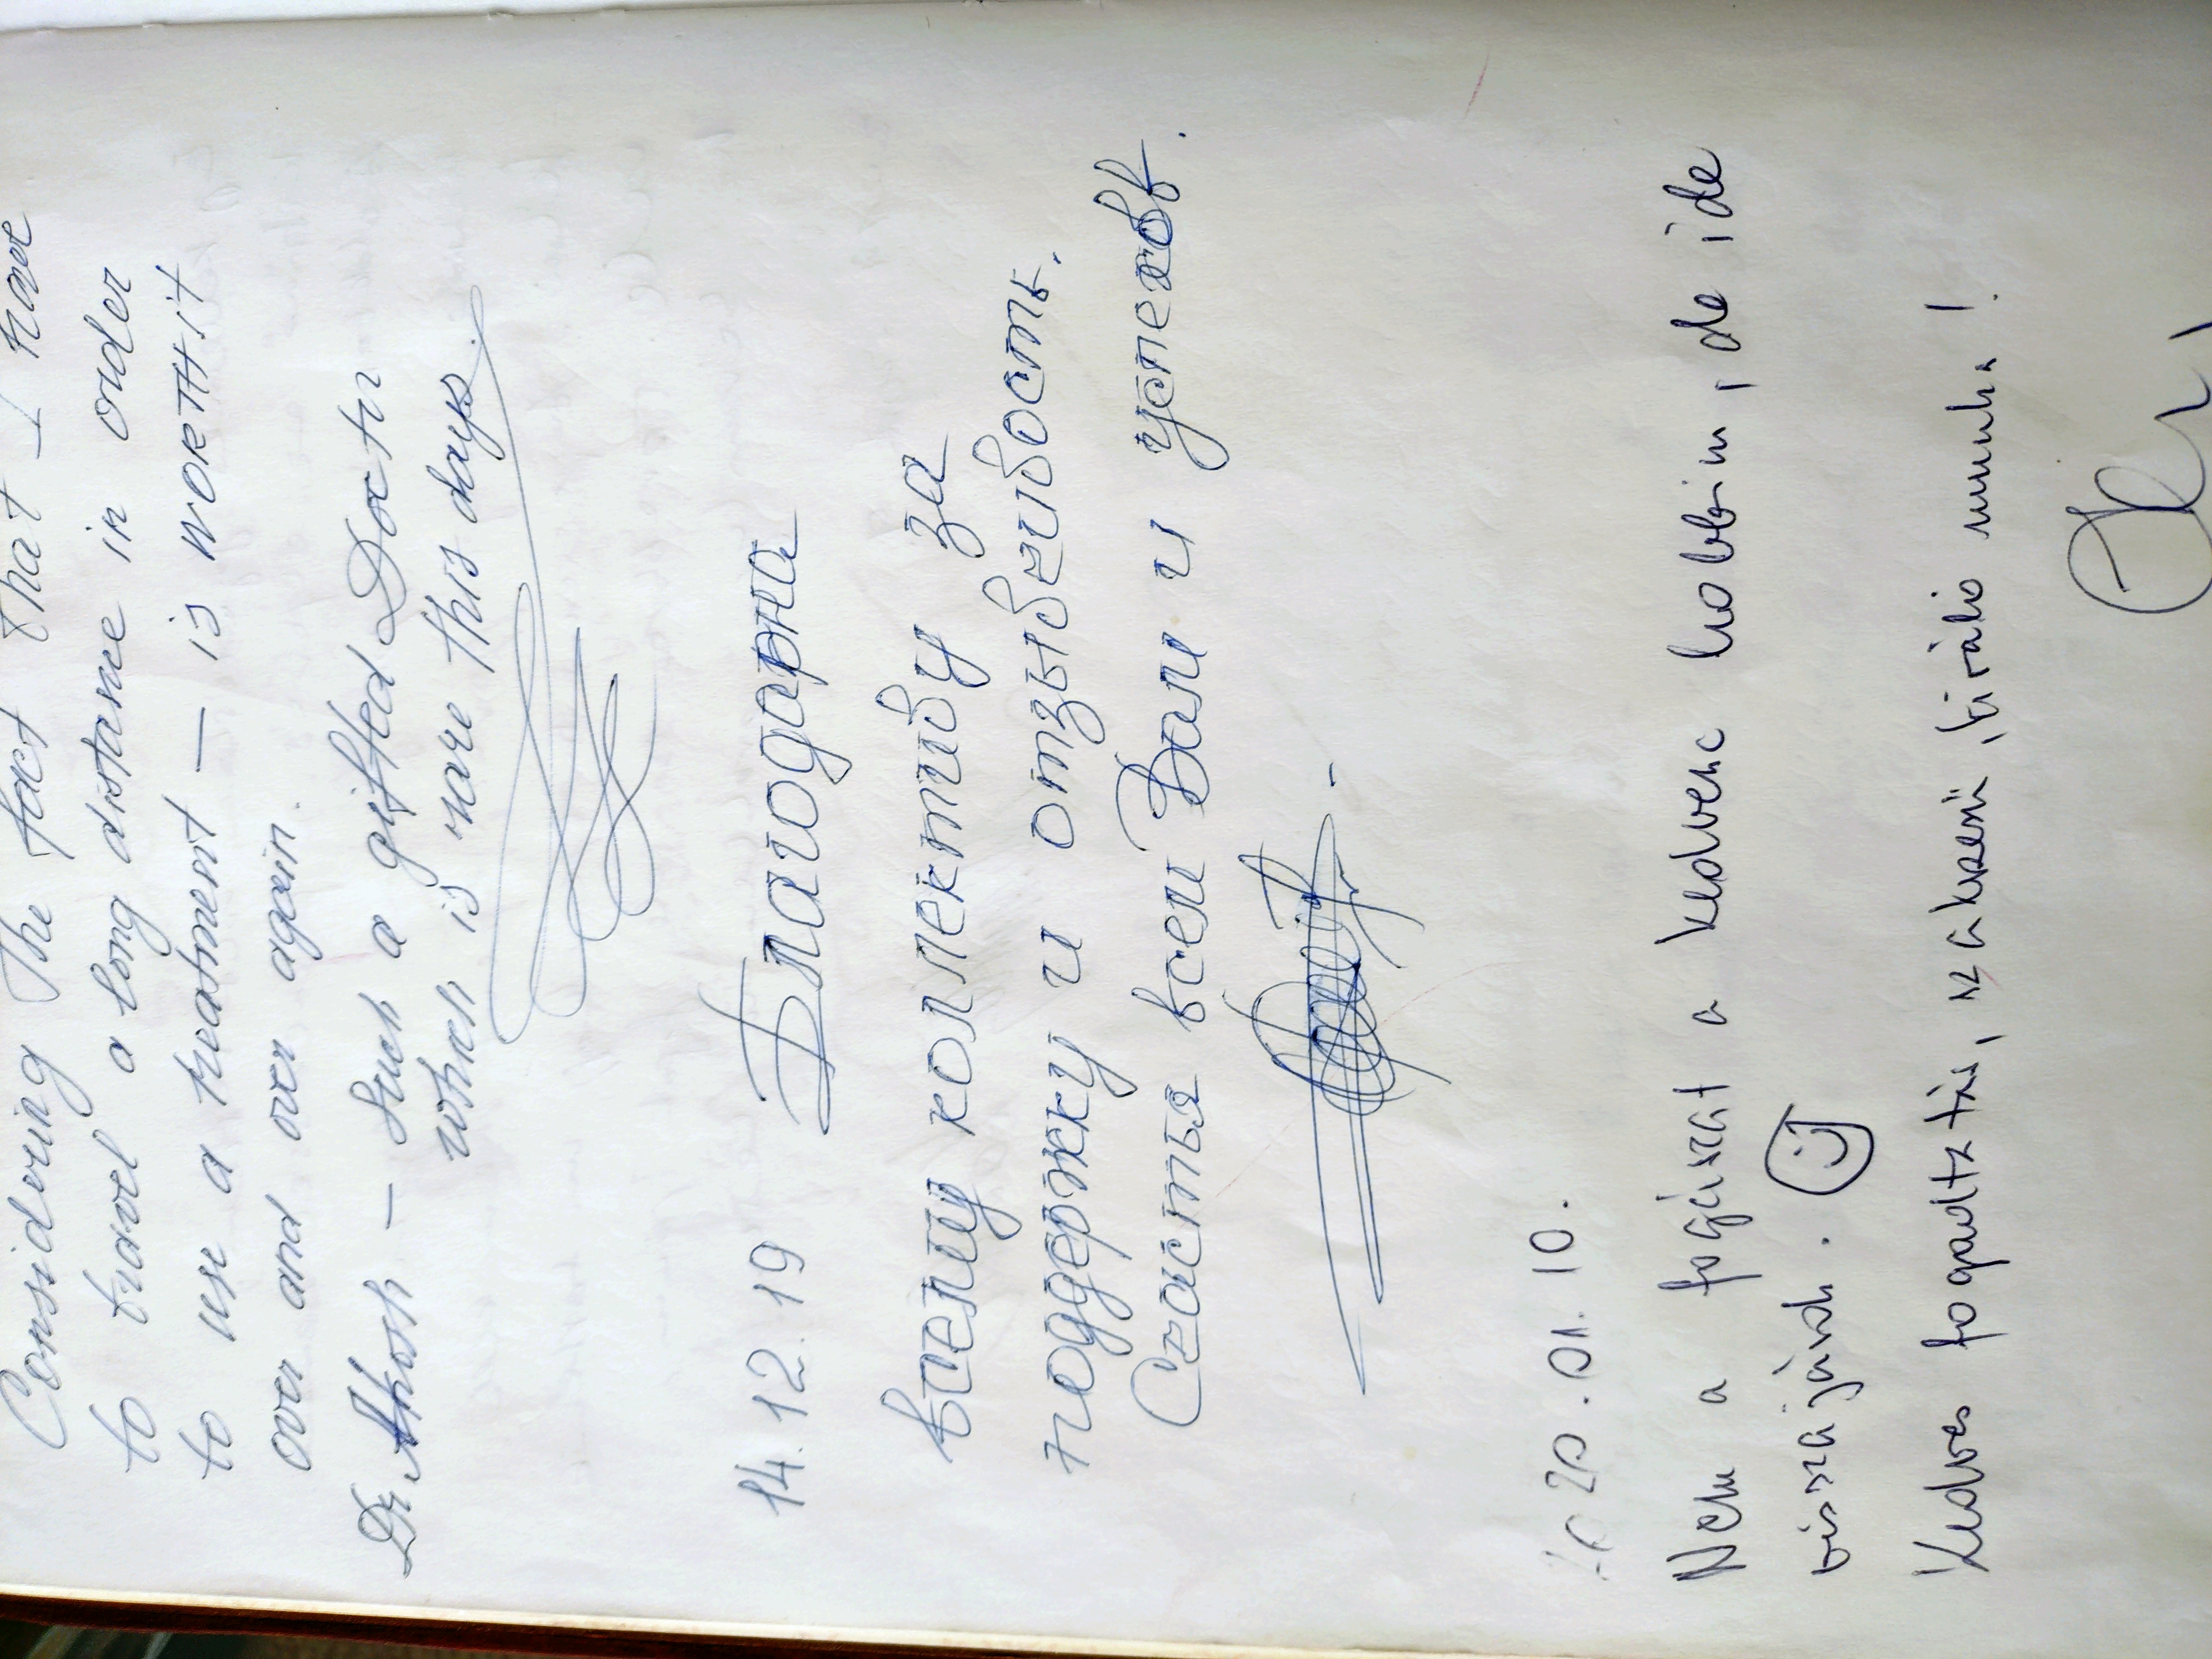 Considering the fact that I have
to travel a long distance in order
to use a treatment — is WORTH it
over and over again.
Dr. Akosh — Such a gifted Doctor
which is rare this days
14.12.19 Благодарна
всему коллективу за
поддержку и отзывчивость.
Счастья всем Вам и успехов.
2020.01.10.
Nem a fogászat a kedvenc hobbim, de ide
visszajárok.
Kedves fogadtatás, szakszerű, kiváló munka!